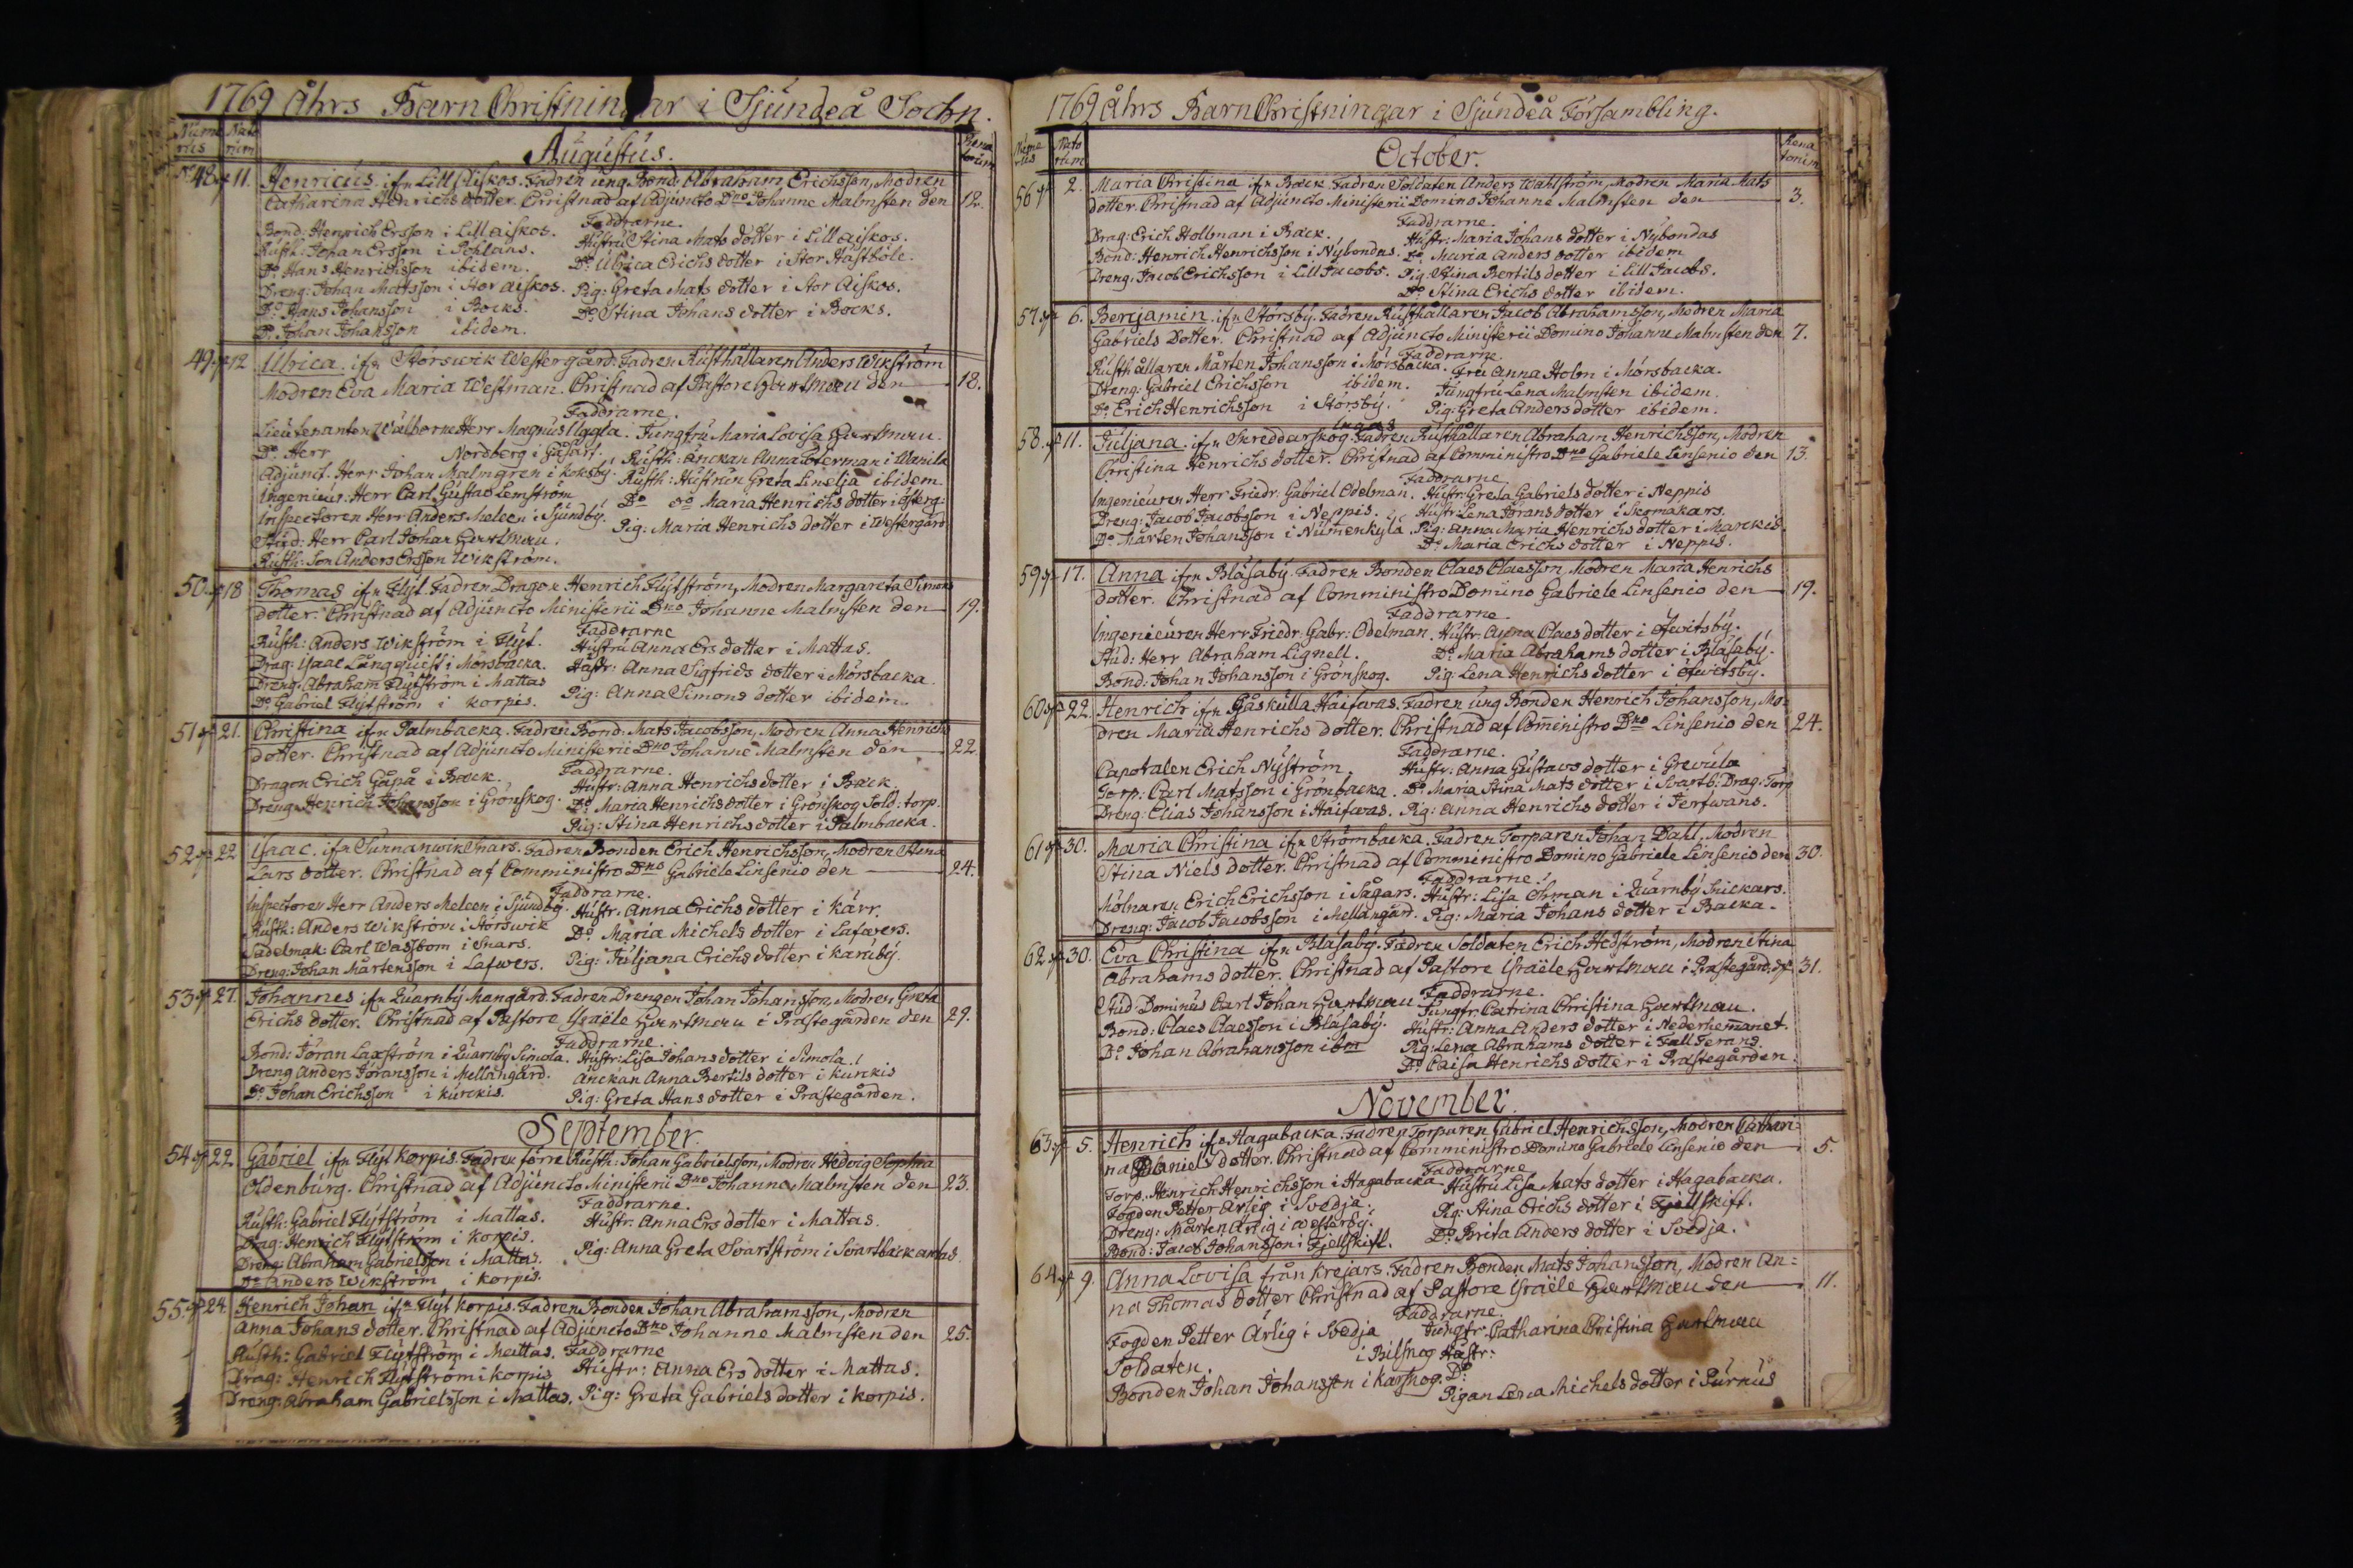 1769 Åhrs Barn Christningar i Sjundeå Sochn.
Nume rus
Nato rum
Rena torum
Augustus.
48. 11. Henricus ifrn Lill Aiskos. Fadren ung Bond: Abraham Erichsson, Modren
Catharina Henrichs dotter. Christnad af Adjuncto Dno Johanne Malmsten den 12.
Faddrarne.
Bond: Henrich Ersson i Lill aiskos. Hustru Stina Mats dotter i Lill aiskos.
Rusth: Johan Ersson i Pohlans. Do Ulrica Erichs dotter i Stor Hästböle.
Do Hans Henrichsson ibidem.
Dreng: Johan Matsson i Stor aiskos. Pig: Greta Mats dotter i Stor Aiskos.
Do Hans Johansson i Bocks. Do Stina Johans dotter i Bocks.
Do Johan Johansson ibidem.
49. 12 Ulrica ifrn Störswik Westergård. Fadren Rusthållaren Anders Wikström
Modren Eva Maria Westman. Christnad af Pastore Hartman den 18.
Faddrarne.
Lieutenanten Wälborne Herr Magnus Uggla. Jungfru Maria Lovisa Hartman.
Do Herr Nordberg i Gåsarf. Rusth: änckan Anna Österman i Wanila
Adjunct. Herr Johan Malmgren i Koksby. Rusth: Hustrun Greta Linelja ibidem
Ingenieur: Herr Carl Gustav Lemström Do oo Maria Henrichs dotter i Österg:
Inspectoren Herr Anders Meleen i Sjundby. Pig: Maria Henrichs dotter i Westergård
Stud: Herr Carl Johan Hartman.
Rusth: Son Anders Ersson Wikström.
50. 18 Thomas ifrn Flyt. Fadren Dragon Henrich Flytström, Modren Margareta Simons
dotter. Christnad af Adjuncto Ministerii Dno Johanne Malmsten den 19.
Faddrarne
Rusth: Anders Wikström i Flyt. Hustru Anna Ers dotter i Mattas.
Drag: Isaac Långquist i Mörsbacka. Hustr: Anna Sigfrids dotter i Mörsbacka.
Dreng: Abraham Flytström i Mattas
Do Gabriel Flytström i Korpis. Pig: Anna Simons dotter ibidem.
51 21. Christina ifrn Palmbacka. Fadren Bond: Mats Jacobsson, Modren Anna Henrichs
dotter. Christnad af Adjuncto Ministerii Dno Johanne Malmsten den 22.
Faddrarne.
Dragon Erich Gåpå i Back. Hustr: Anna Henrichs dotter i Back.
Dreng Henrich Johansson i Grönskog. Do Maria Henrichs dotter i Grönskog Sold: torp.
Pig: Stina Henrichs dotter i Palmbacka.
52 22 Isaac. ifrn Sunnanwik Snars. Fadren Bonden Erich Henrichsson, Modren Stina
Lars dotter. Christnad af Comministro Dno Gabriele Linsenio den 24.
Faddrarne.
Inspectoren Herr Anders Meleen i Sjundby. Hustr. Anna Erichs dotter i Kärr.
Rusth: Anders Wikström i Störswik Do Maria Michels dotter i Lafwers.
Sadelmak: Carl Wassbom i Snars.
Dreng: Johan Mårtensson i Lafwers. Pig: Juljana Erichs dotter i Karuby.
53 27. Johannes ifrn Quarnby Mangård. Fadren Drengen Johan Johansson, Modren Greta
Erichs dotter. Christnad af Pastore Israële Hartman i Prästegården den 29.
Faddrarne.
Bond: Jöran Laxström i Quarnby Simola. Hustr: Lisa Johans dotter i Simola.
Dreng Anders Jöransson i Mellangård. Änckan Anna Bertils dotter i Kurkis
Do Johan Erichsson i Kurckis. Pig: Greta Hans dotter i Prästegården.
September.
54 22 Gabriel ifrn Flyt Korpis. Fadren förre Rusth: Johan Gabrielsson, Modren Hedvig Sophia
Oldenburg. Christnad af Adjuncto Ministerii Dno Johanne Malmsten den 23.
Faddrarne.
Rusth: Gabriel Flytström i Mattas. Hustr: Anna Ers dotter i Mattas.
Drag: Henrich Flytström i Korpis.
Dreng: Abraham Gabrielsson i Mattas. Pig: Anna Greta Svartström i Svartbackantas.
Do Anders Wikström i Korpis.
55. 24 Henrich Johan ifrn Flyt Korpis. Fadren Bonden Johan Abrahamsson, Modren
Anna Johans dotter. Christnad af Adjuncto Dno Johanne Malmsten den 25.
Faddrarne
Rusth: Gabriel Flytström i Mattas. Hustr: Anna Ers dotter i Mattas.
Drag: Henrich Flytström i Korpis
Dreng: Abraham Gabrielsson i Mattas. Pig: Greta Gabriels dotter i Korpis.
1769 Åhrs Barn Christningar i Sjundeå Försambling.
Nume rus
Nato rum
Rena torum
October.
56 2. Maria Christina ifrn Back. Fadren Soldaten Anders Wahlström, Modren Maria Mats
dotter. Christnad af Adjuncto Ministerii Domino Johanne Malmsten den 3.
Faddrarne.
Drag: Erich Hollman i Back. Hustr: Maria Johans dotter i Nybondas
Bond: Henrich Henrichsson i Nybondas. Do Maria Anders dotter ibidem
Dreng: Jacob Erichsson i Lill Jacobs. Pig. Stina Bertils dotter i Lill Jacobs.
Do Stina Erichs dotter ibidem.
57 6. Benjamin ifrn Störsby. Fadren Rusthållaren Jacob Abrahamsson, Modren Maria
Gabriels Dotter. Christnad af Adjuncto Ministerii Domino Johanne Malmsten den 7.
Faddrarne.
Rusthållaren Mårten Johansson i Mörsbacka. Fru Anna Holm i Mörsbacka.
Dreng: Gabriel Erichsson ibidem. Jungfru Lena Malmsten ibidem.
Do Erich Henrichsson i Störsby. Pig: Greta Anders dotter ibidem.
58. 11. Juljana ifrn Skreddarskog. Fadren Rusthållaren Abraham Henrichsson, Modren
Christina Henrichs dotter. Christnad af Comministro Dno Gabriele Linsenio den 13.
Faddrarne
Ingenieuren Herr Friedr. Gabriel Odelman. Hustr: Greta Gabriels dotter i Neppis
Dreng: Jacob Jacobsson i Neppis. Hustr: Lena Jörans dotter i Skomakars.
Do Mårten Johansson i Numenkylä Pig: Anna Maria Henrichs dotter i Marckis.
Do Maria Erichs dotter i Neppis.
59 17. Anna ifrn Blåsaby. Fadren Bonden Claes Claesson, Modren Maria Henrichs
dotter. Christnad af Comministro Domino Gabriele Linsenio den 19.
Faddrarne
Ingenieuren Herr Friedr: Gabr: Odelman. Hustr: Anna Claes dotter i Öfwitsby.
Stud: Herr Abraham Lignell. Do Maria Abrahams dotter i Blåsaby.
Bond: Johan Johansson i Grönskog. Pig: Lena Henrichs dotter i Öfwitsby.
60 22. Henrich ifrn Gåskulla Haifwas. Fadren ung Bonden Henrich Johansson, Mo-
dren Maria Henrichs dotter. Christnad af Com̄inistro Dno Linsenio den 24.
Faddrarne.
Caporalen Erich Nyström. Hustr: Anna Gustavs dotter i Grevula
Torp: Carl Matsson i Grönbacka. Do Maria Stina Mats dotter i Svartb: Drag: Torp
Dreng: Elias Johansson i Haifwas. Pig: Anna Henrichs dotter i Jerfwans.
61 30. Maria Christina ifrn Strömbacka. Fadren Torparen Johan Dahl. Modren
Stina Niels dotter. Christnad af Comministro Domino Gabriele Linsenio den 30.
Faddrarne.
Mölnaren Erich Erichsson i Sågars. Hustr: Lisa Öhman i Quarnby Snickars.
Dreng: Jacob Jacobsson i Mellangård. Pig: Maria Johans dotter i Backa.
62 30. Eva Christina ifrn Blåsaby. Fadren Soldaten Erich Hedström, Modren Stina
Abrahams dotter. Christnad af Pastore Israële Hartman i Prästegård: d. 31.
Faddrarne.
Stud: Dominus Carl Johan Hartman Jungfr. Catrina Christina Hartman.
Bond: Claes Claesson i Blåsaby. Hustr: Anna Anders dotter i Nederhemanet.
Do Johan Abrahamsson ibm Pig: Lena Abrahams dotter i Fall Ferans.
Do Caisa Henrichs dotter i Prästegården.
November.
63 5. Henrich ifrn Hagabacka. Fadren Torparen Gabriel Henrichsson, Modren Cathari-
na Daniels dotter. Christnad af Comministro Domino Gabriele Linsenio den 5.
Faddrarne
Torp. Henrich Henrichsson i Hagabacka Hustru Lisa Mats dotter i Hagabacka.
Fogden Petter Ärlig i Svedja. Pig: Stina Erichs dotter i Fjellskift.
Dreng: Mårten Ärlig i Westerby.
Bond: Jacob Johansson i Fjellskift. Do Brita Anders dotter i Svedja.
64 9. Anna Lovisa från Krejars. Fadren Bonden Mats Johansson, Modren An-
na Thomas dotter Christnad af Pastore Israële Hartman den 11.
Faddrarne.
Fogden Petter Ärlig i Svedja Jungfr. Catharina Christina Hartman
Soldaten. i Bilskog Hustr:
Bonden Johan Johansson i Karskog. Do
Pigan Lena Michels dotter i Purnus